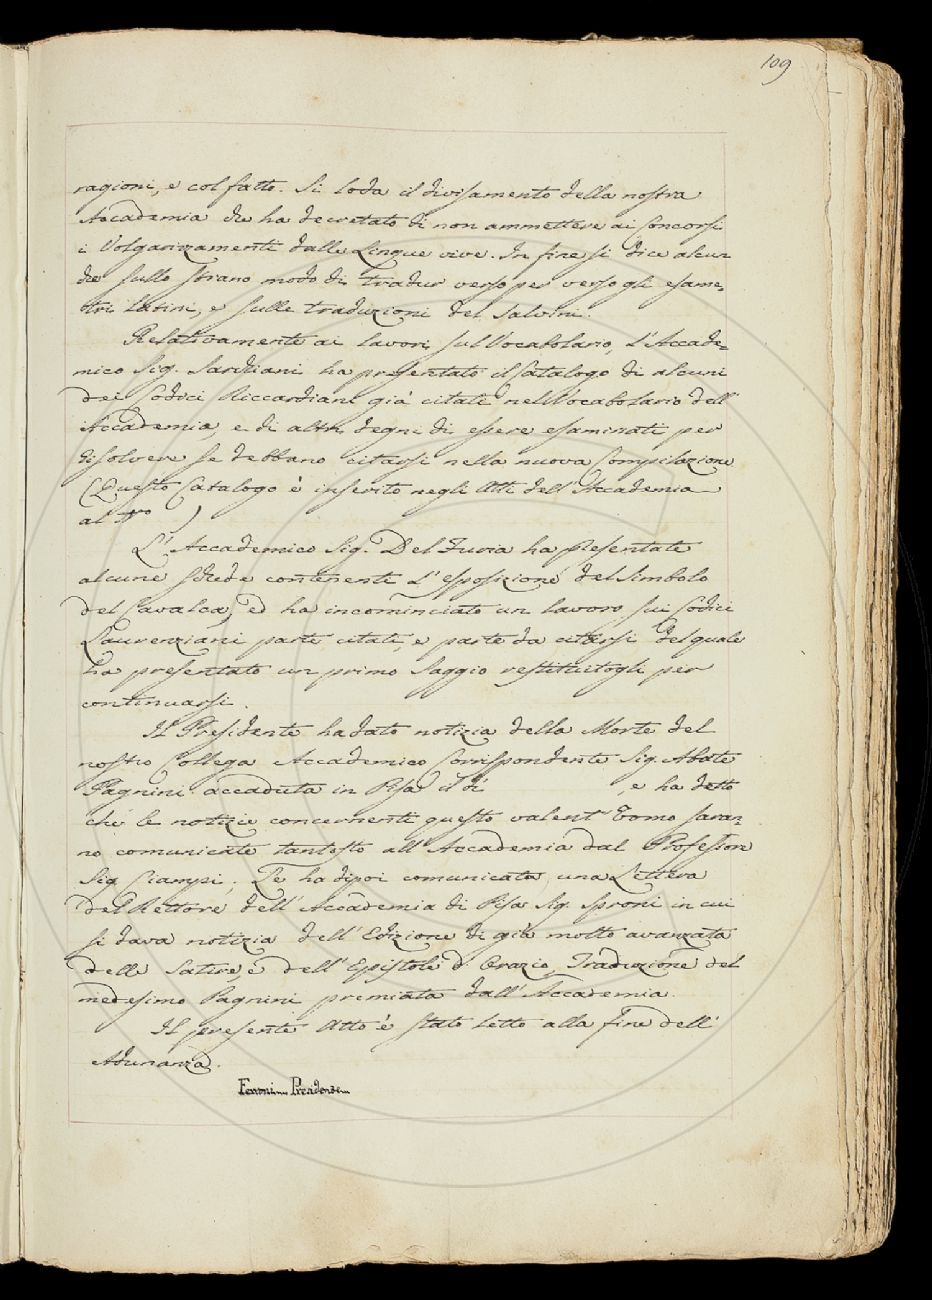 109
ragioni, e col fatto. Si loda il divisamento della nostra
Accademia che ha decretato di non ammettere ai Concorsi
i Volgarizzamenti dalle Lingue vive. In fine si dice alcun
che sullo strano modo di tradur verso per verso gli esame-
tri Latini, e sulle traduzioni del Salvini.
Relativamente ai lavori sul Vocabolario, l'Accade-
mico Sig. Sarchiani ha presentato il Catalogo di alcuni
dei Codici Riccardiani già citati nel Vocabolario dell'
Accademia, e di altri degni di essere esaminati per
risolvere se debbano citarsi nella nuova Compilazione
(Questo Catalogo è inserito negli Atti dell'Accademia
al N.o )
L'Accademico Sig. Del Furia ha presentate
alcune schede contenenti l'esposizione del Simbolo
del Cavalca, ed ha incominciato un lavoro sui Codici
Laurenziani parte citati, e parte da citarsi del quale
ha presentato un primo Saggio restituitogli per
continuarsi.
Il Presidente ha dato notizia della Morte del
nostro Collega Accademico Corrispondente Sig. Abate
Pagnini accaduta in Pisa il dì , e ha detto
che le notizie concernenti questo valent'Uomo saran-
no comunicate tantosto all'Accademia dal Professore
Sig. Ciampi; Le ha dipoi comunicata una Lettera
del Rettore dell'Accademia di Pisa Sig. Sproni in cui
si dava notizia dell'Edizione di già molto avanzata
delle Satire, e dell'Epistole d'Orazio, Traduzione del
medesimo Pagnini premiata dall'Accademia.
Il presente Atto è stato letto alla fine dell'
Adunanza.
Ferroni Presidente